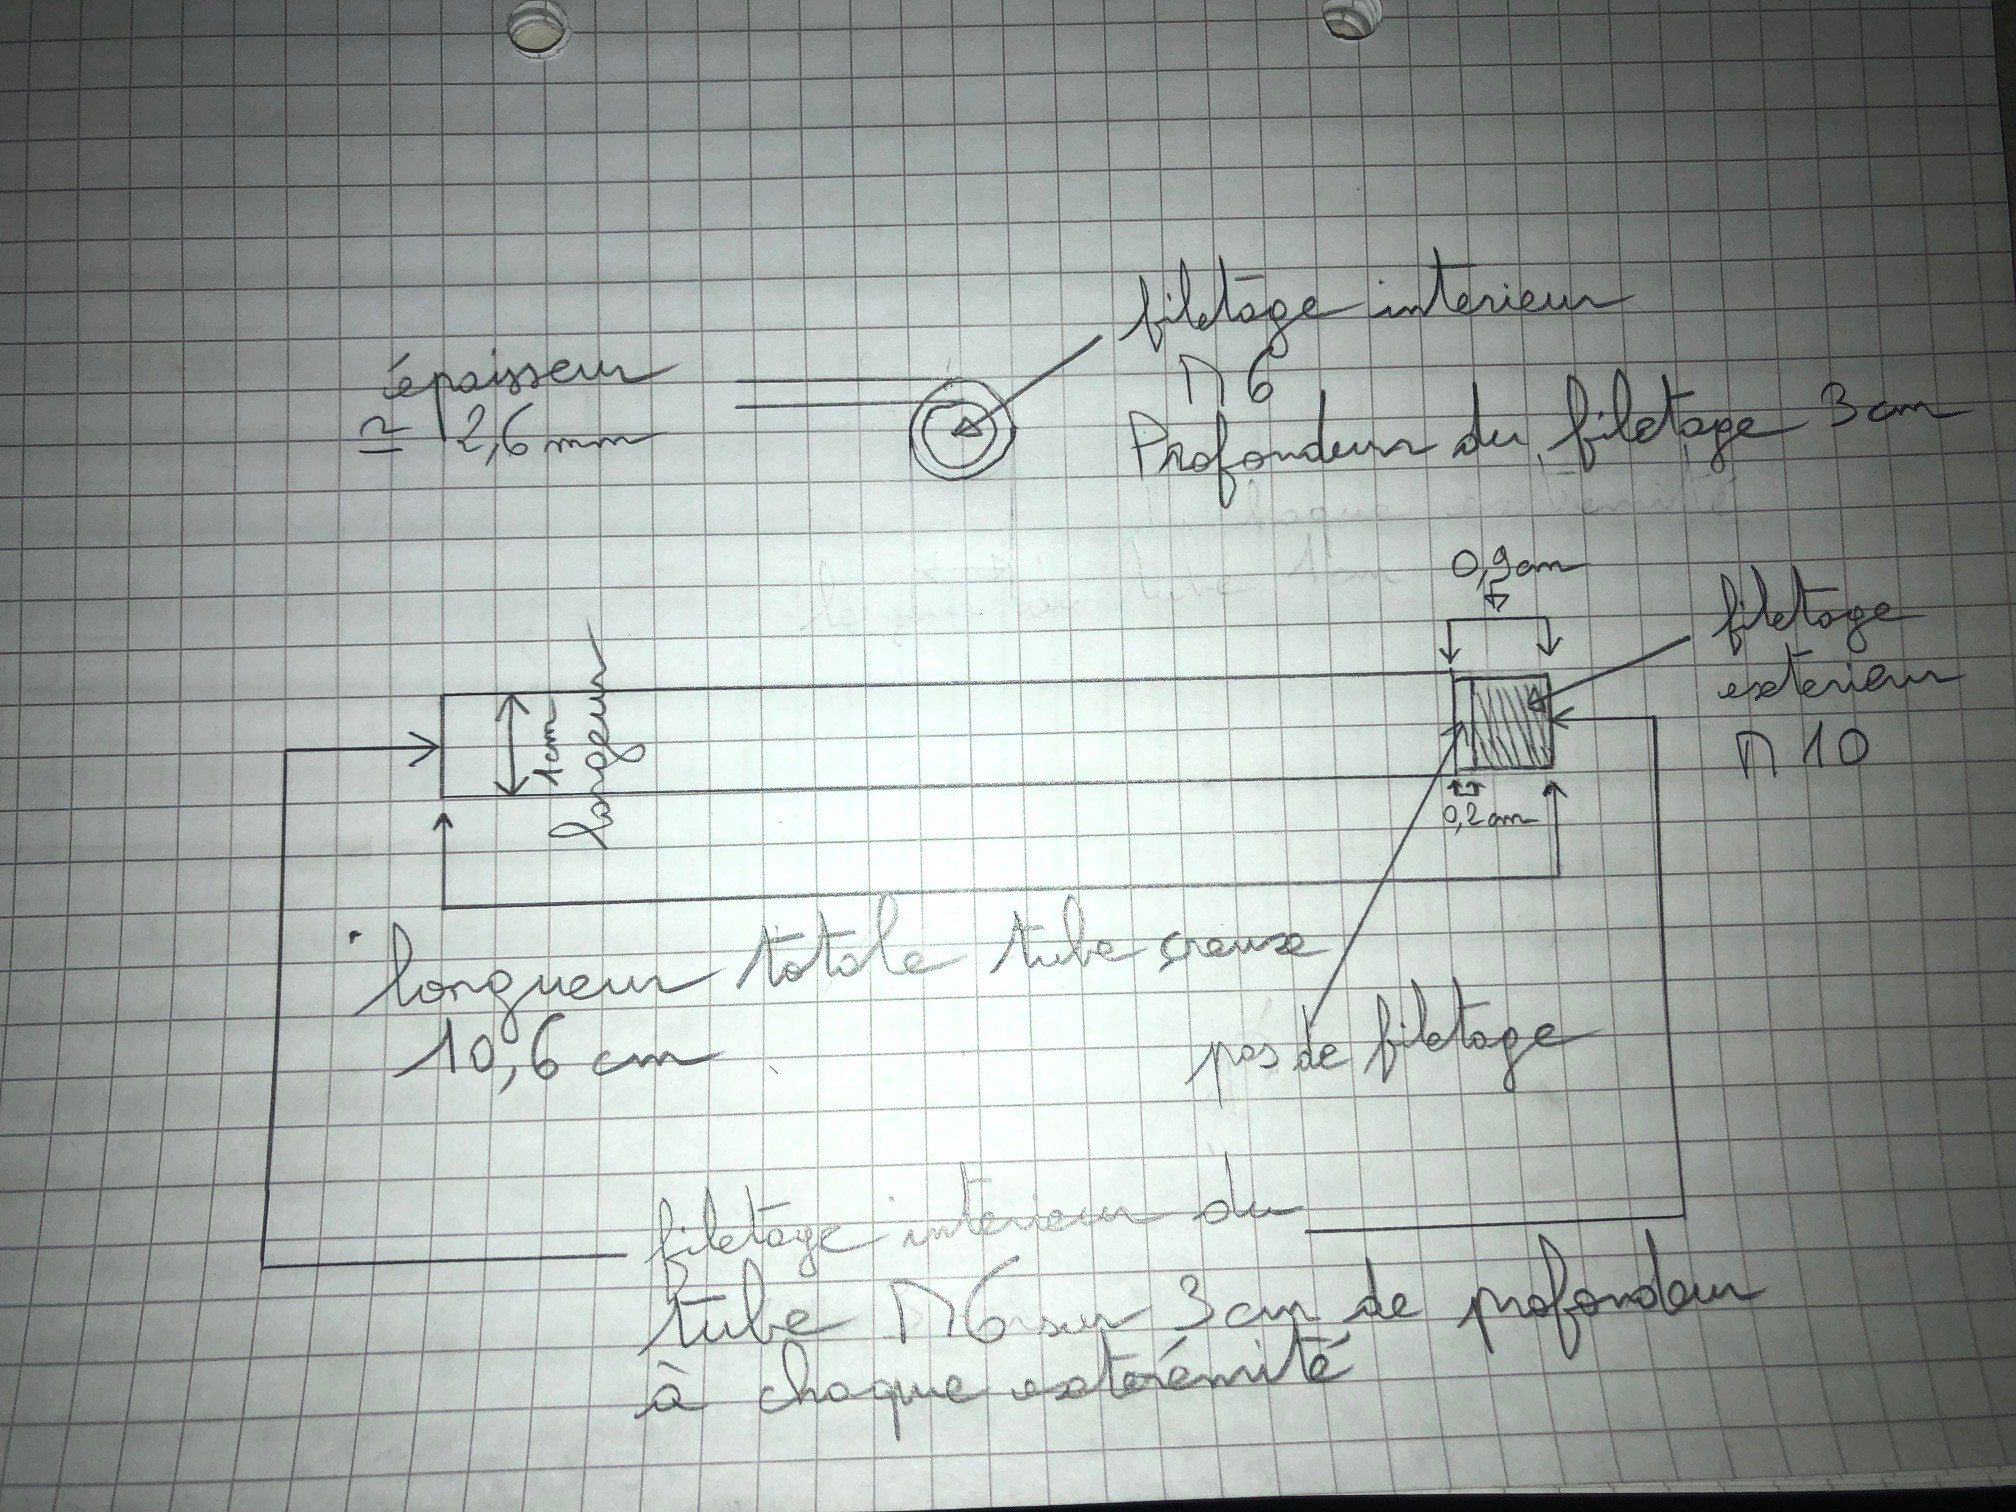 filetage interieur
M6
Profondeur du filetage 3cm
épaisseur
≃ 2,6 mm
0,9cm
filetage
exterieur
M 10
1cm
largeur
0,2cm
longueur totale tube creux
10,6 cm
pas de filetage
filetage interieur du
tube M6 sur 3cm de profondeur
à chaque extrémité